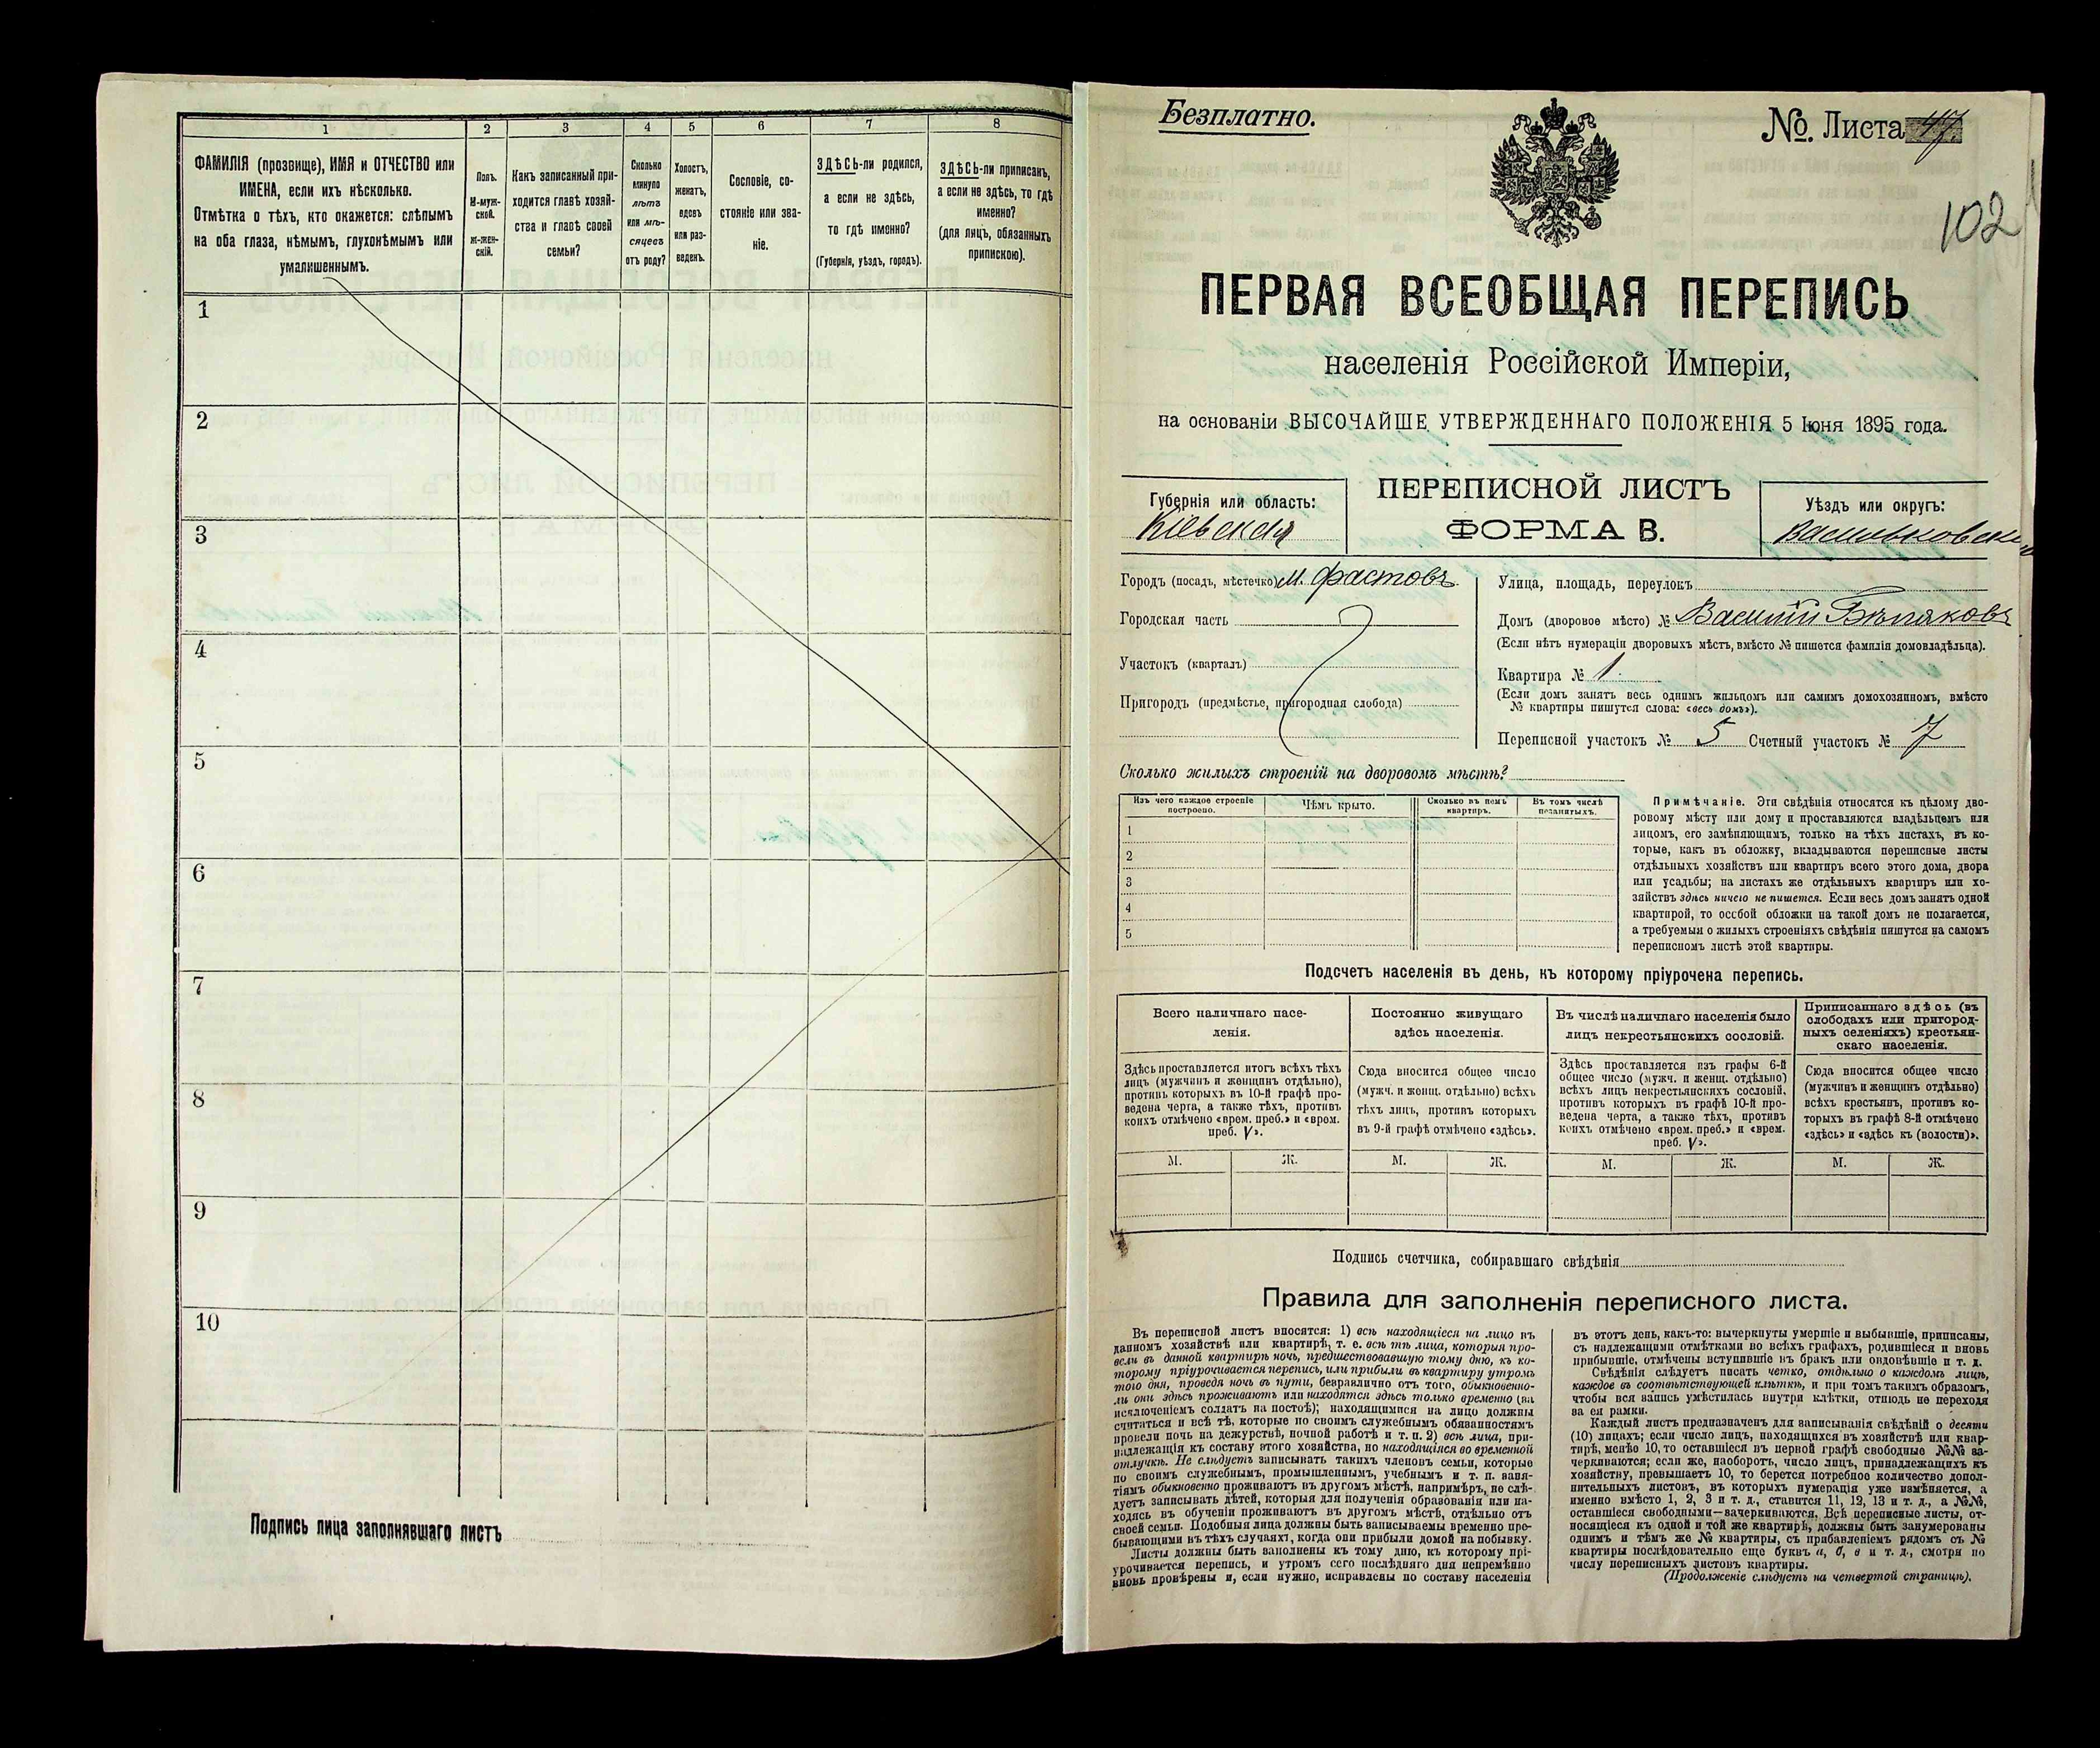 1
2
3
4
5
6
7
8
ФАМИЛІЯ (прозвище), ИМЯ и ОТЧЕСТВО или
ИМЕНА, если ихъ нѣсколько.
Отмѣтка о тѣхъ, кто окажется: слѣпымъ
на оба глаза, нѣмымъ, глухонѣмымъ или
умалишеннымъ.
Полъ.
М-муж-
ской.
Ж-жен-
скій.
Какъ записанный при-
ходится главѣ хозяй-
ства и главѣ своей
семьи?
Сколько
минуло
лѣтъ
или мѣ-
сяцевъ
отъ роду?
Холостъ,
женатъ,
вдовъ
или раз-
веденъ.
Сословіе, со-
стояніе или зва-
ніе.
ЗДѢСЬ-ли родился,
а если не здѣсь,
то гдѣ именно?
(Губернія, уѣздъ, городъ).
ЗДѢСЬ-ли приписанъ,
а если не здѣсь, то гдѣ
именно?
(для лицъ, обязанныхъ
припискою).
1
2
3
4
5
6
7
8
9
10
Подпись лица заполнявшаго листъ
Безплатно.
№ Листа 47.
102
ПЕРВАЯ ВСЕОБЩАЯ ПЕРЕПИСЬ
населенія Россійской Имперіи,
на основаніи ВЫСОЧАЙШЕ УТВЕРЖДЕННАГО ПОЛОЖЕНІЯ 5 Іюня 1895 года.
Губернія или область:
Кіевская
ПЕРЕПИСНОЙ ЛИСТЪ
ФОРМА В.
Уѣздъ или округъ:
Васильковскій
Городъ (посадъ, мѣстечко) м. Фастовъ
Городская часть
Участокъ (кварталъ)
Пригородъ (предмѣстье, пригородная слобода)
Улица, площадь, переулокъ
Домъ (дворовое мѣсто) № Василій Бѣляковъ
(Если нѣтъ нумераціи дворовыхъ мѣстъ, вмѣсто № пишется фамилія домовладѣльца).
Квартира № 1.
(Если домъ занятъ весь однимъ жильцомъ или самимъ домохозяиномъ, вмѣсто
№ квартиры пишутся слова: «весь домъ»).
Переписной участокъ № 5 Счетный участокъ № 7
Сколько жилыхъ строеній на дворовомъ мѣстѣ?
Изъ чего каждое строеніе
построено.
Чѣмъ крыто.
Сколько въ немъ
квартиръ.
Въ томъ числѣ
незанятыхъ.
1
2
3
4
5
Примѣчаніе. Эти свѣдѣнія относятся къ цѣлому дво-
ровому мѣсту или дому и проставляются владѣльцемъ или
лицомъ, его замѣняющимъ, только на тѣхъ листахъ, въ ко-
торые, какъ въ обложку, вкладываются переписные листы
отдѣльныхъ хозяйствъ или квартиръ всего этого дома, двора
или усадьбы; на листахъ же отдѣльныхъ квартиръ или хо-
зяйствъ здѣсь ничего не пишется. Если весь домъ занятъ одной
квартирой, то особой обложки на такой домъ не полагается,
а требуемыя о жилыхъ строеніяхъ свѣдѣнія пишутся на самомъ
переписномъ листѣ этой квартиры.
Подсчетъ населенія въ день, къ которому пріурочена перепись.
Всего наличнаго насе-
ленія.
Здѣсь проставляется итогъ всѣхъ тѣхъ
лицъ (мужчинъ и женщинъ отдѣльно),
противъ которыхъ въ 10-й графѣ про-
ведена черта, а также тѣхъ, противъ
коихъ отмѣчено «врем. преб.» и «врем.
преб. V».
М. Ж.
Постоянно живущаго
здѣсь населенія.
Сюда вносится общее число
(мужч. и женщ. отдѣльно) всѣхъ
тѣхъ лицъ, противъ которыхъ
въ 9-й графѣ отмѣчено «здѣсь».
М. Ж.
Въ числѣ наличнаго населенія было
лицъ некрестьянскихъ сословій.
Здѣсь проставляется изъ графы 6-й
общее число (мужч. и женщ. отдѣльно)
всѣхъ лицъ некрестьянскихъ сословій,
противъ которыхъ въ графѣ 10-й про-
ведена черта, а также тѣхъ, противъ
коихъ отмѣчено «врем. преб.» и «врем.
преб. V».
М. Ж.
Приписаннаго здѣсь (въ
слободахъ или пригород-
ныхъ селеніяхъ) крестьян-
скаго населенія.
Сюда вносится общее число
(мужчинъ и женщинъ отдѣльно)
всѣхъ крестьянъ, противъ ко-
торыхъ въ графѣ 8-й отмѣчено
«здѣсь» и «здѣсь къ (волости)».
М. Ж.
Подпись счетчика, собиравшаго свѣдѣнія
Правила для заполненія переписного листа.
Въ переписной листъ вносятся: 1) всѣ находящіеся на лицо въ
данномъ хозяйствѣ или квартирѣ, т. е. всѣ тѣ лица, которыя про-
вели въ данной квартирѣ ночь, предшествовавшую тому дню, къ ко-
торому пріурочивается перепись, или прибыли въ квартиру утромъ
того дня, проведя ночь въ пути, безразлично отъ того, обыкновенно-
ли они здѣсь проживаютъ или находятся здѣсь только временно (за
исключеніемъ солдатъ на постоѣ); находящимися на лицо должны
считаться и всѣ тѣ, которые по своимъ служебнымъ обязанностямъ
провели ночь на дежурствѣ, ночной работѣ и т. п. 2) всѣ лица, при-
надлежащія къ составу этого хозяйства, но находящіяся во временной
отлучкѣ. Не слѣдуетъ записывать такихъ членовъ семьи, которые
по своимъ служебнымъ, промышленнымъ, учебнымъ и т. п. заня-
тіямъ обыкновенно проживаютъ въ другомъ мѣстѣ, напримѣръ, не слѣ-
дуетъ записывать дѣтей, которыя для полученія образованія или на-
ходясь въ обученіи проживаютъ въ другомъ мѣстѣ, отдѣльно отъ
своей семьи. Подобныя лица должны быть записываемы временно пре-
бывающими въ тѣхъ случаяхъ, когда они прибыли домой на побывку.
Листы должны быть заполнены къ тому дню, къ которому прі-
урочивается перепись, и утромъ сего послѣдняго дня непремѣнно
вновь провѣрены и, если нужно, исправлены по составу населенія
въ этотъ день, какъ-то: вычеркнуты умершіе и выбывшіе, приписаны,
съ надлежащими отмѣтками во всѣхъ графахъ, родившіеся и вновь
прибывшіе, отмѣчены вступившіе въ бракъ или овдовѣвшіе и т. д.
Свѣдѣнія слѣдуетъ писать четко, отдѣльно о каждомъ лицѣ,
каждое въ соотвѣтствующей клѣткѣ, и при томъ такимъ образомъ,
чтобы вся запись умѣстилась внутри клѣтки, отнюдь не переходя
за ея рамки.
Каждый листъ предназначенъ для записыванія свѣдѣній о десяти
(10) лицахъ; если число лицъ, находящихся въ хозяйствѣ или квар-
тирѣ, менѣе 10, то оставшіеся въ первой графѣ свободные №№ за-
черкиваются; если же, наоборотъ, число лицъ, принадлежащихъ къ
хозяйству, превышаетъ 10, то берется потребное количество допол-
нительныхъ листовъ, въ которыхъ нумерація уже измѣняется, а
именно вмѣсто 1, 2, 3 и т. д., ставится 11, 12, 13 и т. д., а №№,
оставшіеся свободными—зачеркиваются. Всѣ переписные листы, от-
носящіеся къ одной и той же квартирѣ, должны быть занумерованы
однимъ и тѣмъ же № квартиры, съ прибавленіемъ рядомъ съ №
квартиры послѣдовательно еще буквъ а, б, в и т. д., смотря по
числу переписныхъ листовъ квартиры.
(Продолженіе слѣдуетъ на четвертой страницѣ).